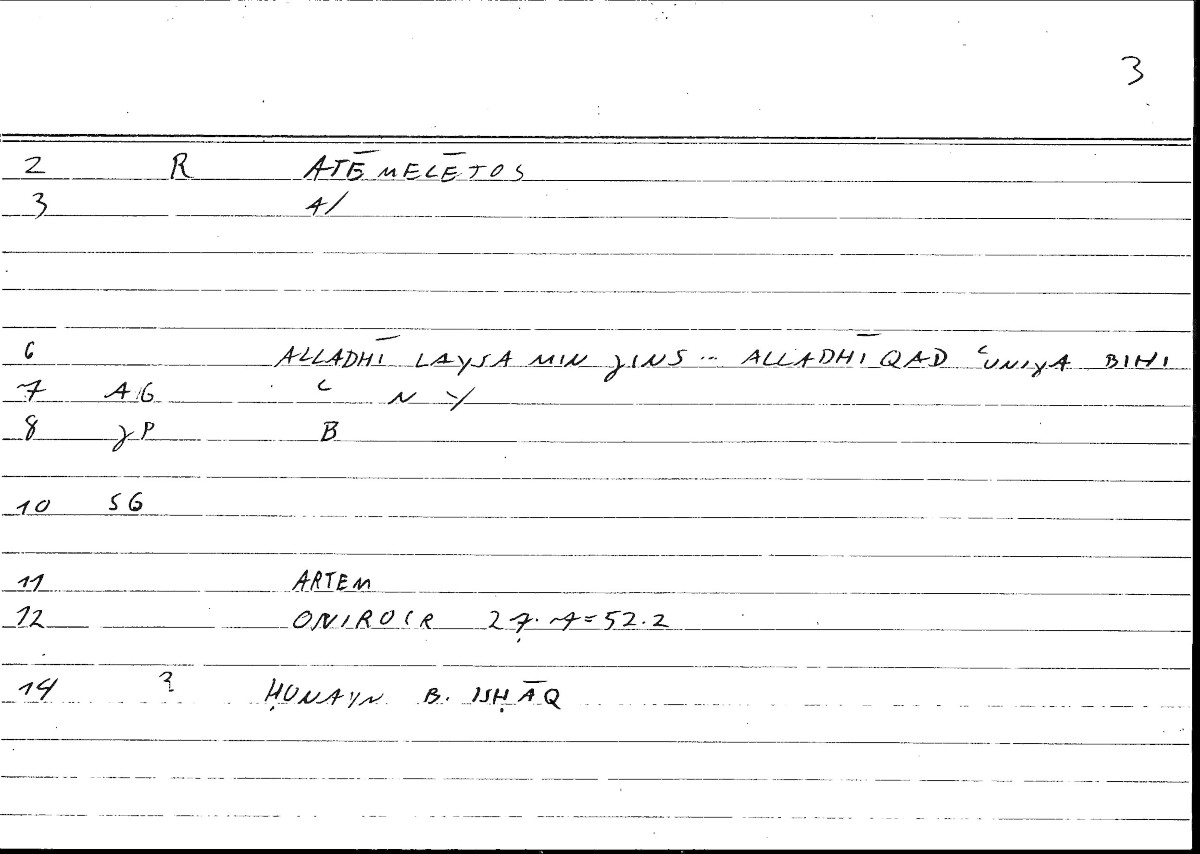 3
2 R ATĒMELĒTOS
3 A/
6 ALLADHĪ LAYSA MIN JINS .. ALLADHĪ QAD ʿUNIYA BIHI
7 AG ʿ N Y
8 JP B
10 SG
11 ARTEM
12 ONIROCR 27.7=52.2
14 ? ḤUNAYN B. ISḤĀQ